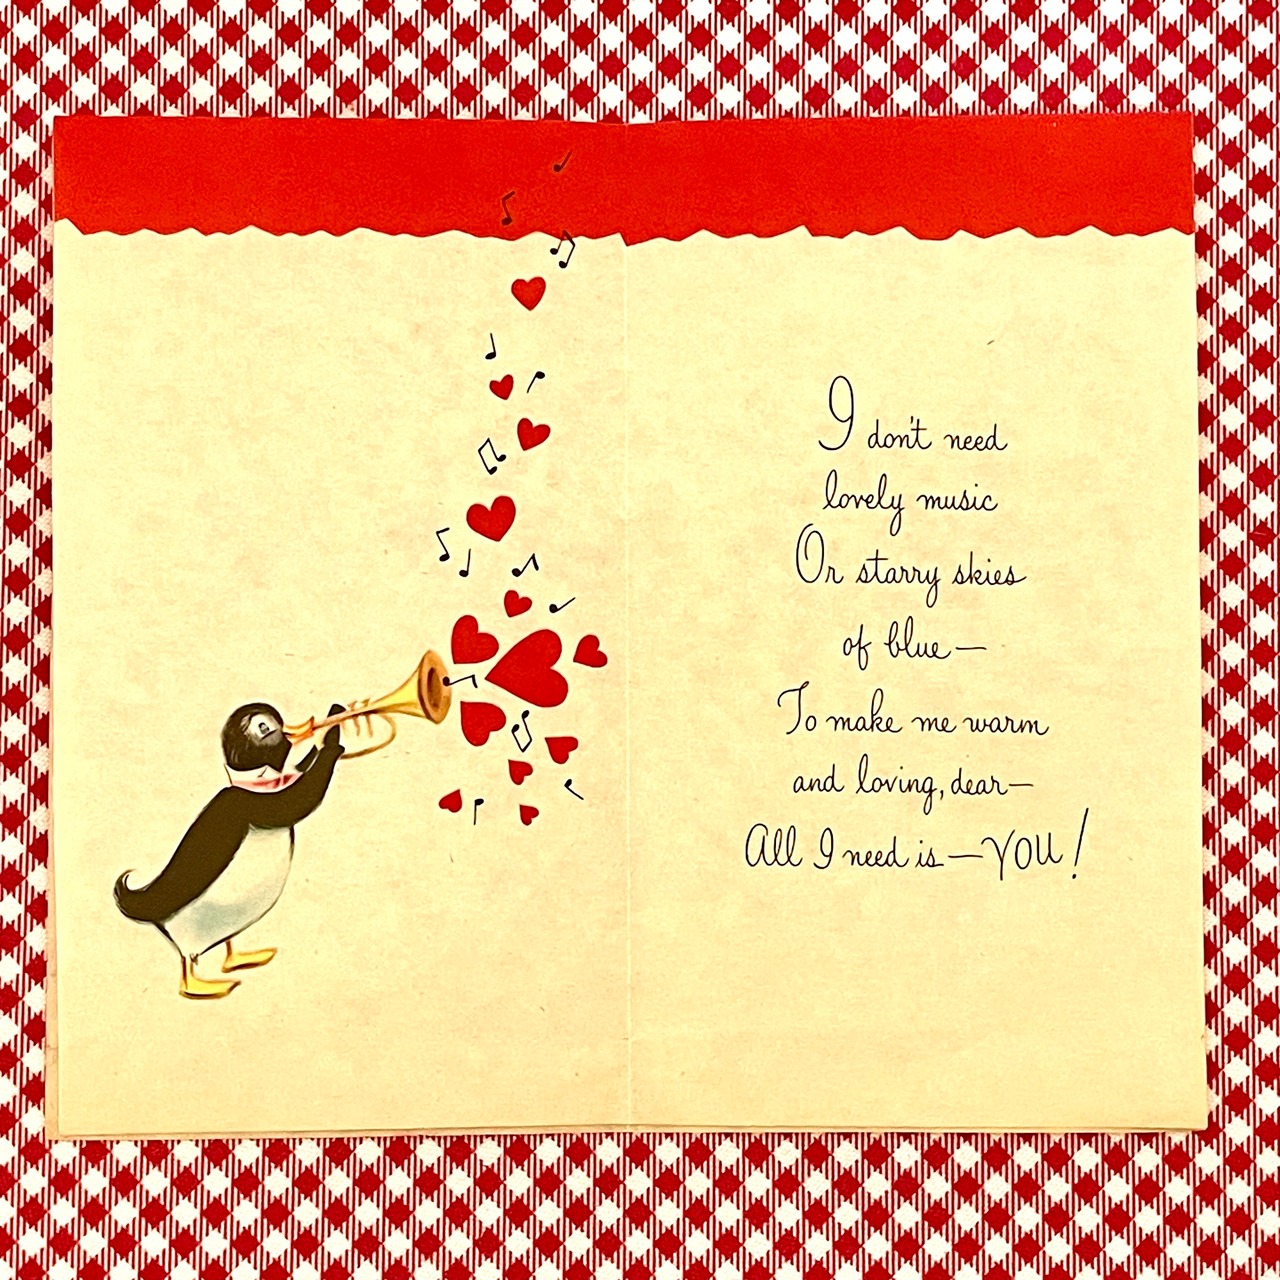 I don't need
lovely music
Or starry skies
of blue—
To make me warm
and loving, dear—
All I need is—YOU!